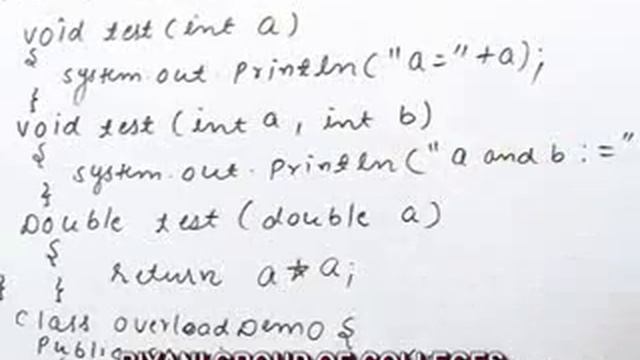 void test (int a)
{
system.out.println("a="+a);
}
void test (int a, int b)
{
system.out.println("a and b :="
}
Double test (double a)
{
return a*a;
} }
class overloadDemo {
Public